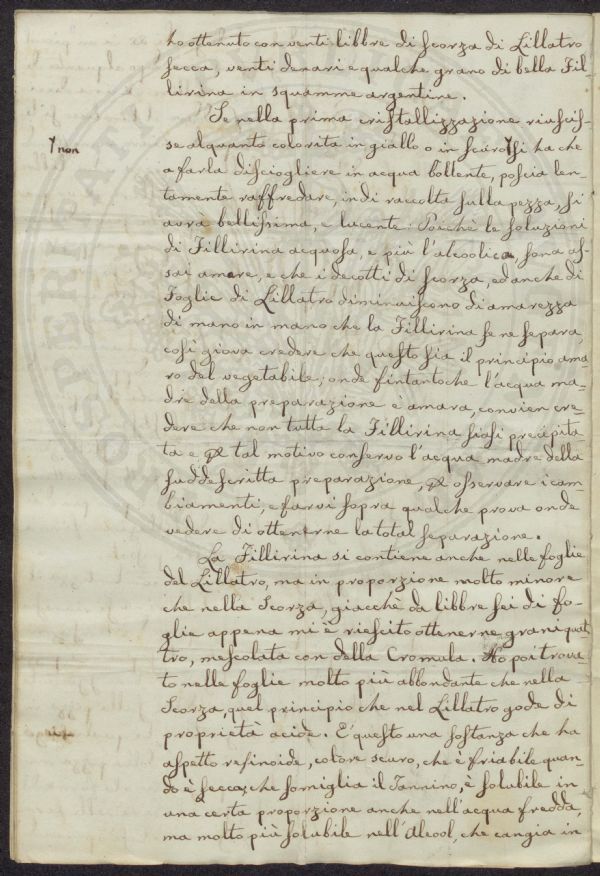 ho ottenuto con venti libbre di scorza di Lillatro
secca, venti denari e qualche grano di bella Fil-
lirina in squamme argentine.
Se nella prima cristallizzazione riuscis-
se alquanto colorita in giallo o in scuro si ha che
non
a farla disciogliere in acqua bollente, poscia len-
tamente raffredare, indi raccolta sulla pezza, si
avrà bellissima, e lucente. Poichè le soluzioni
di Fillirina acquosa, e più l'alcoolica, sono as-
sai amare, e che i decotti di scorza, ed anche di
Foglie di Lillatro diminuiscono di amarezza
di mano in mano che la Fillirina se ne separa,
così giova credere che questo sia il principio ama-
ro del vegetabile, onde fintantochè l'acqua ma-
dre della preparazione è amara, convien cre-
dere che non tutta la Fillirina siasi precipita-
ta e tal motivo conservo l'acqua madre della
suddescritta preparazione, osservare i cam-
biamenti, e farvi sopra qualche prova onde
vedere di ottenerne la total separazione.
La Fillirina si contiene anche nelle foglie
del Lillatro, ma in proporzione molto minore
che nella Scorza, giacchè da libbre sei di fo-
glie appena mi è riescito ottenerne grani quat-
tro, mescolata con della Cromula. Ho poi trova-
to nelle foglie molto più abbondante che nella
Scorza, quel principio che nel Lillatro gode di
proprietà acide. E' questo una sostanza che ha
aspetto resinoide, colore scuro, che è friabile quan-
do è secca, che somiglia il Tannino, è solubile in
una certa proporzione anche nell'acqua fredda,
ma molto più solubile nell'Alcool, che cangia in